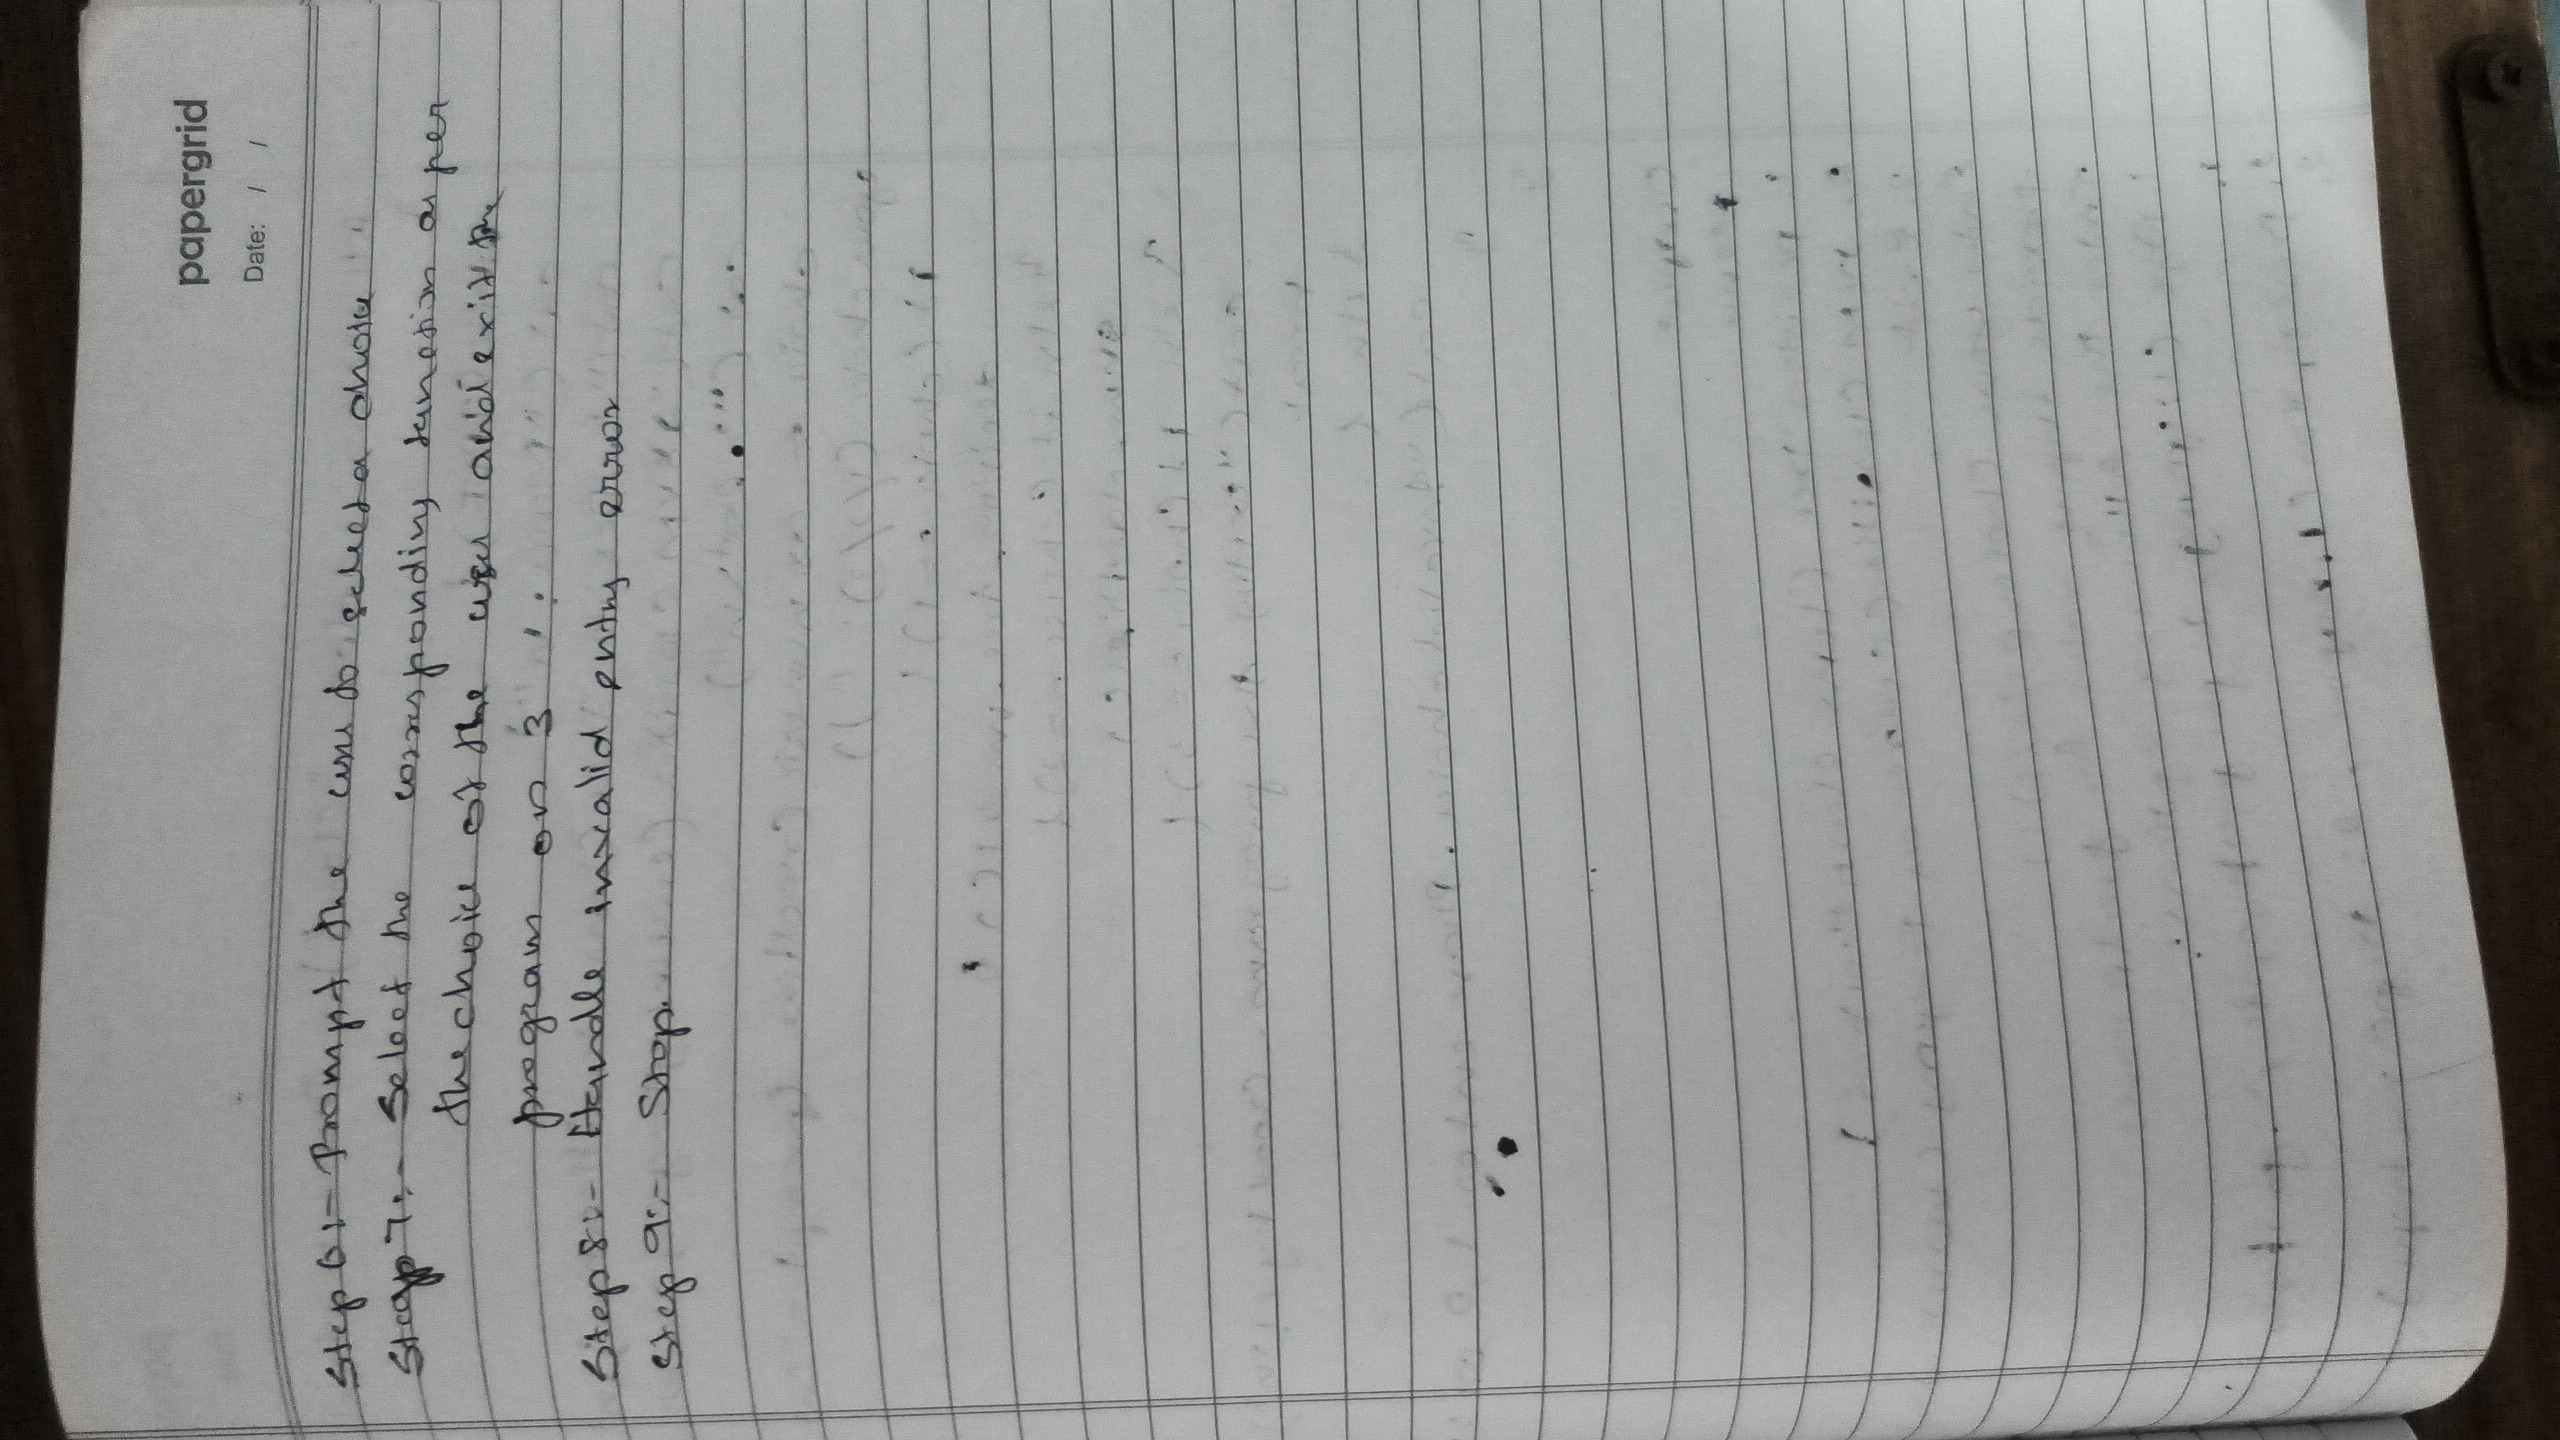 papergrid
Date: / /
Step 6:- Prompt the user to select a choice
Step 7:- Select the corresponding function as per
the choice of the user and exit the
program on 3.
Step 8:- Handle invalid entry error
Step 9:- Stop.